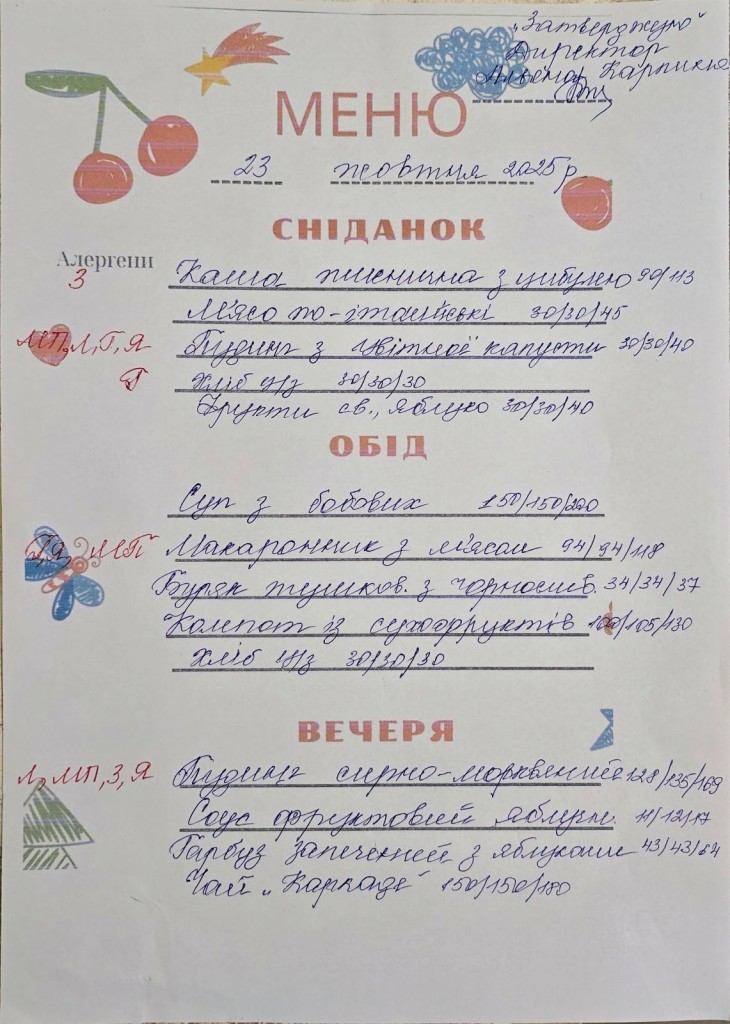 „Затверджую"
Директор
Карпюк
МЕНЮ
23 жовтня 2025 р
СНІДАНОК
Алергени
З Каша пшенична з цибулею 90/113
М'ясо по-італійські 30/30/45
МП, Л, Г, Я Пудинг з цвітної капусти 30/30/40
Г Хліб ц/з 30/30/30
Фрукти св., яблуко 30/30/40
ОБІД
Суп з бобових 150/150/200
Г, Я, МП Макаронник з м'ясом 94/94/118
Буряк тушков. з чорнослив. 34/34/37
Компот із сухофруктів 100/105/130
Хліб ц/з 30/30/30
ВЕЧЕРЯ
Л, МП, З, Я Пудинг сирно-морквяний 128/135/169
Соус фруктовий яблучн. 11/12/17
Гарбуз запечений з яблуками 43/43/64
Чай „Каркаде" 150/150/180